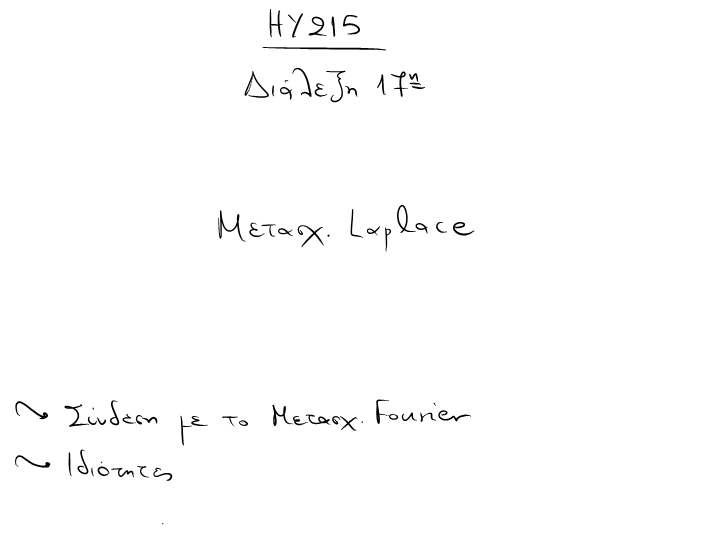 HY215
Διάλεξη 17η
Μετασχ. Laplace
~ Σύνδεση με το Μετασχ. Fourier
~ Ιδιότητες